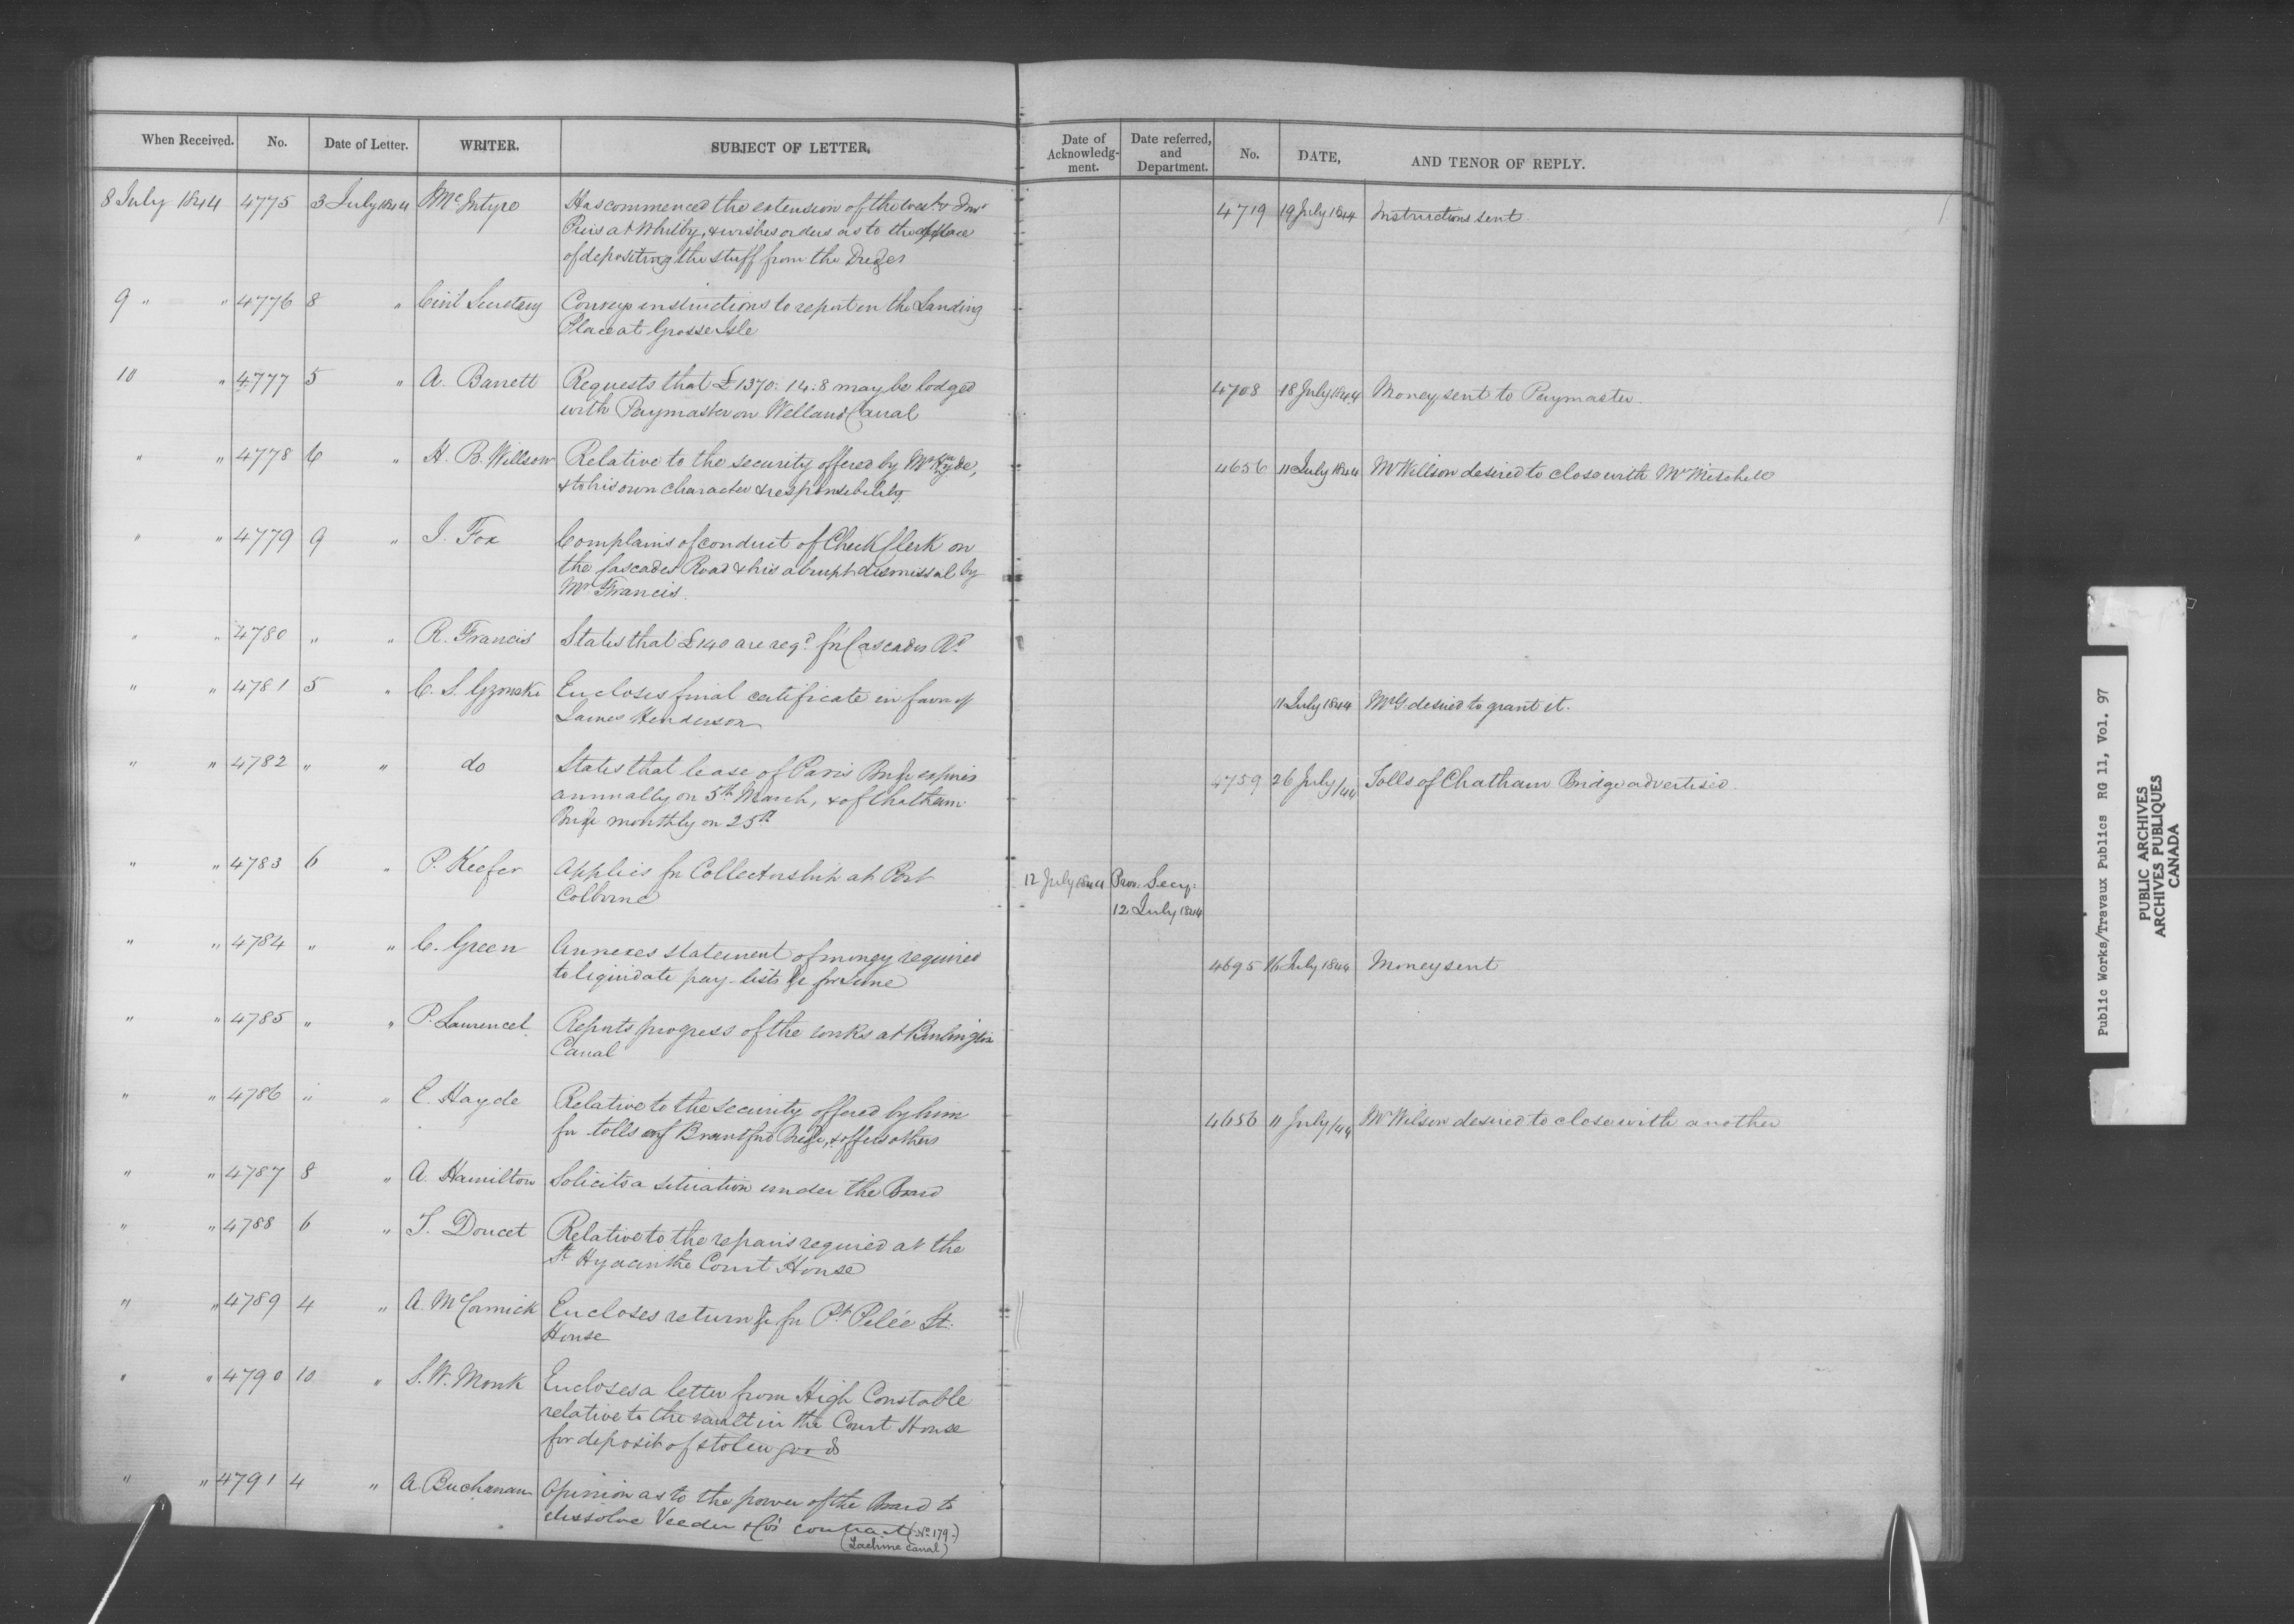 When Received. No. Date of Letter. WRITER. SUBJECT OF LETTER.
Date of Acknowledg-ment. Date referred, and Department. No. DATE, AND TENOR OF REPLY.
8 July 1844 4775 3 July 1844 McIntyre Has commenced the extension of the
Piers at Whitby, & wishes orders as to the place
of depositing the stuff from the Dredger
4719 19 July 1844 Instructions sent.
9 " " 4776 8 " Civil Secretary Conveys instructions to report on the Landing
Place at Grosse Isle
10 " 4777 5 " A. Barrett Requests that £1370:14:8 may be lodged
with Paymaster on Welland Canal
4708 18 July 1844 Money sent to Paymaster.
" " 4778 6 " H. B. Willson Relative to the security offered by Mr
& to his own character & responsibility
4656 11 July 1844 Mr Willson desired to close with Mr Mitchell
" " 4779 9 " J. Fox Complains of conduct of Check Clerk on
the Cascades Road & his abrupt dismissal by
Mr Francis.
" " 4780 " " R. Francis States that £140 are reqd for Cascades Rd
" " 4781 5 " C. S. Gzowski Encloses final certificate in favor of
James Henderson
11 July 1844 Mr G desired to grant it.
" " 4782 " " do States that lease of Paris Bridge expires
annually on 5th March, & of Chatham
Bridge monthly on 25th
4759 26 July/44 Tolls of Chatham Bridge advertised.
" " 4783 6 " P. Keefer Applies for Collectorship at Port
Colborne
12 July 1844 Prov: Secy:
12 July 1844
" " 4784 " " C. Green Annexes statement of money required
to liquidate pay-lists &c for June
4695 16 July 1844 Money sent
" " 4785 " " P. Laurencel Reports progress of the works at Burlington
Canal
" " 4786 " " E. Hayde Relative to the security offered by him
for tolls of Brantford Bridge, & offers others
4656 11 July/44 Mr Wilson desired to close with another
" " 4787 8 " A. Hamilton Solicits a situation under the Board
" " 4788 6 " T. Doucet Relative to the repairs required at the
St Hyacinthe Court House
" " 4789 4 " A. McCormick Encloses return &c for Pt Pelée Lt.
House
" " 4790 10 " S. W. Monk Encloses a letter from High Constable
relative to the vault in the Court House
for deposit of stolen goods
" " 4791 4 " A. Buchanan Opinion as to the power of the Board to
dissolve Veeder & Co's contract (No 179.)
(Lachine Canal)
Public Works/Travaux Publics RG 11, Vol. 97
PUBLIC ARCHIVES
ARCHIVES PUBLIQUES
CANADA